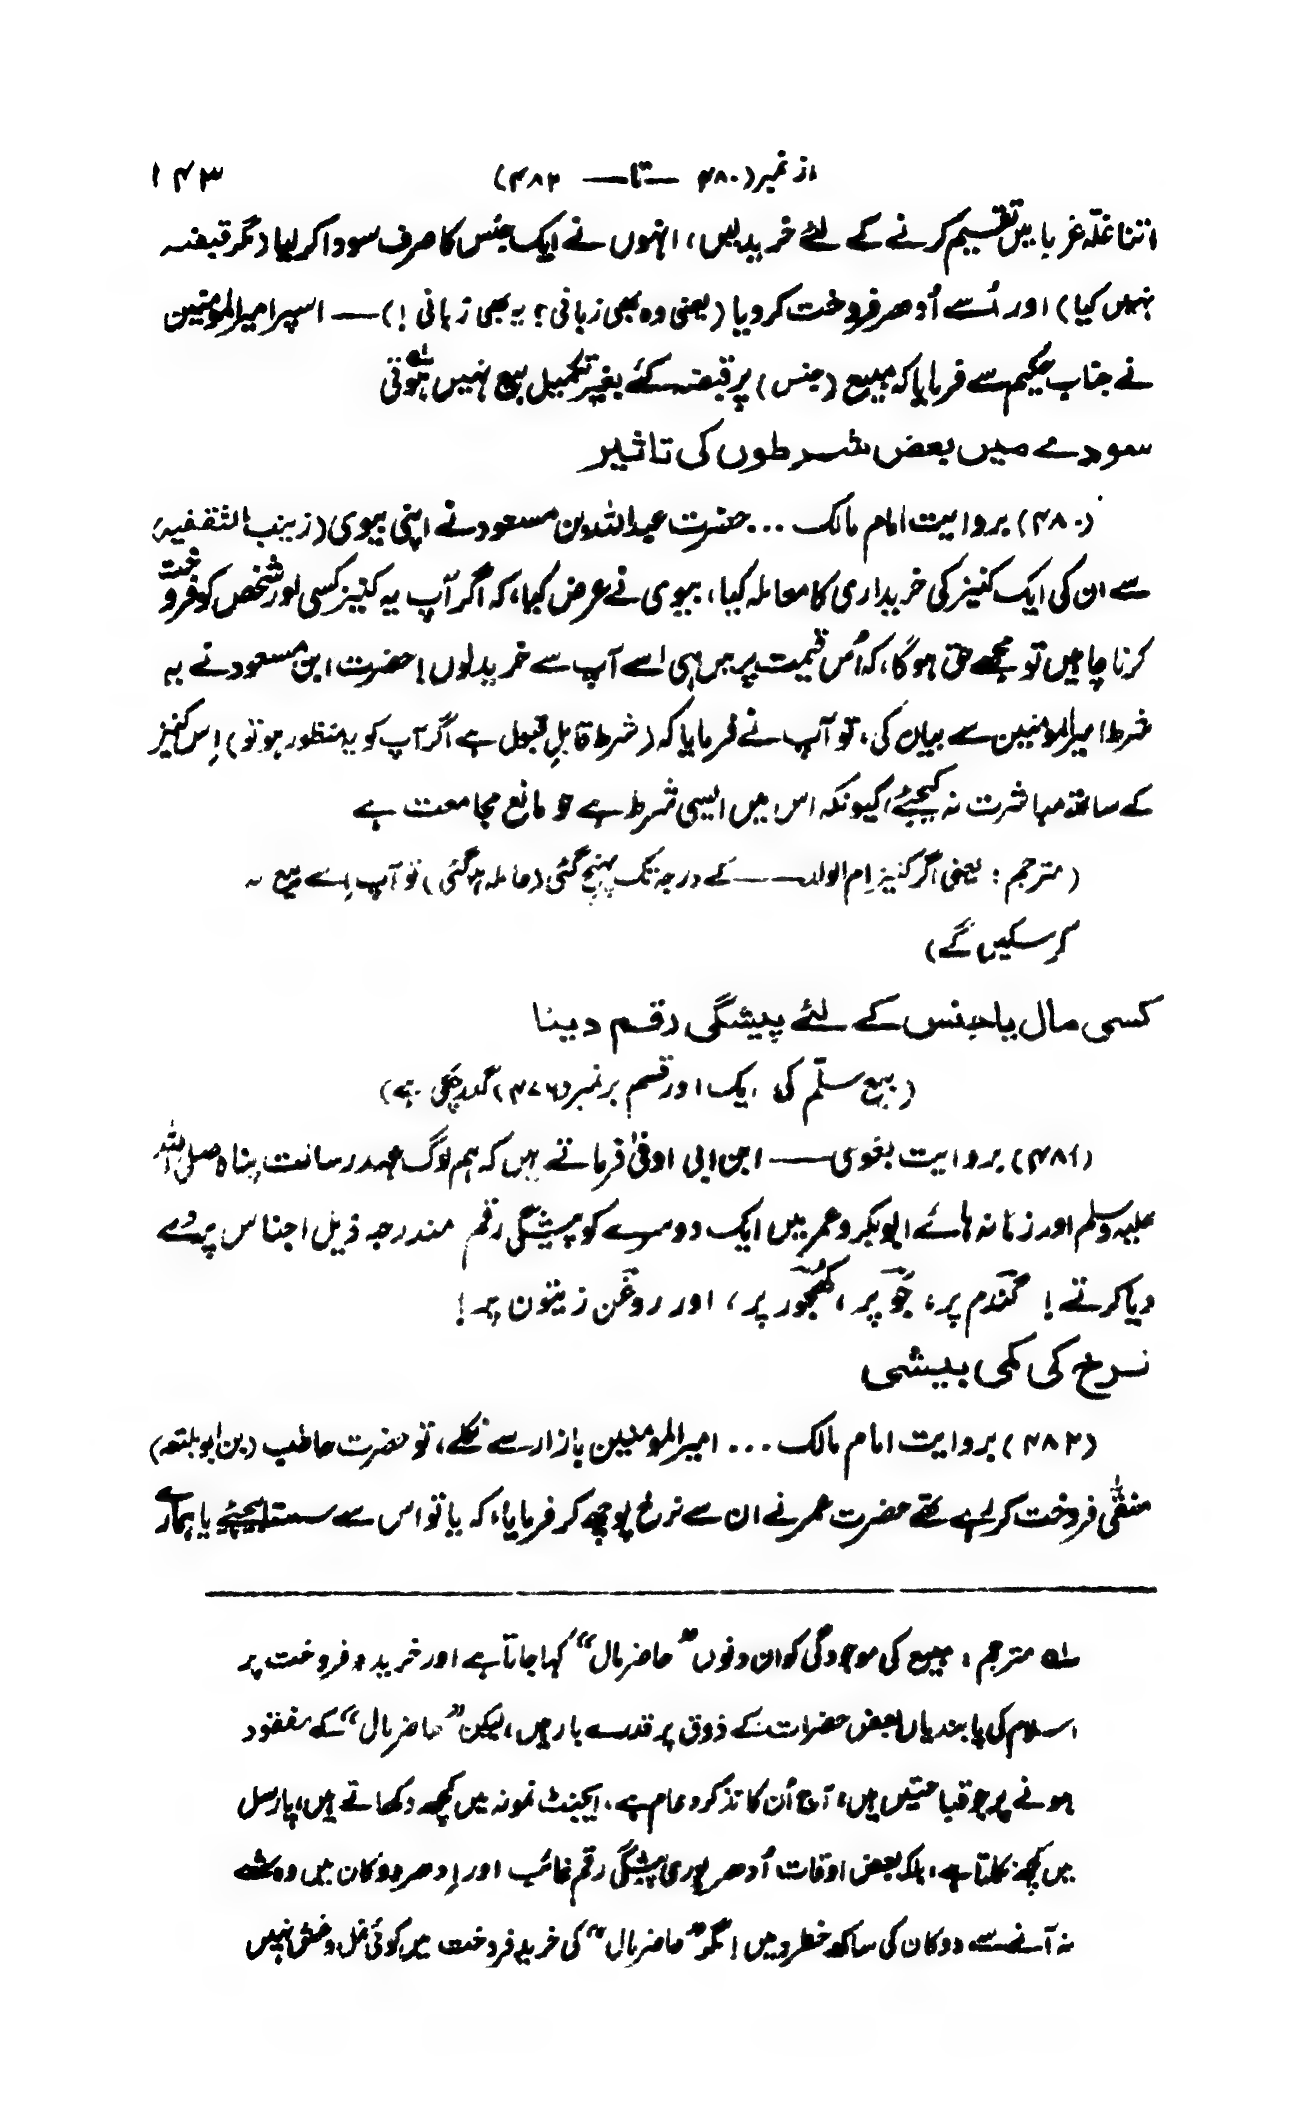 از نمبر (۴۸۰ — تا — ۴۸۲) ۱۴۳
اتنا غلّہ غربا میں تقسیم کرنے کے لئے خریدیں، انہوں نے ایک جنس کا صرف سودا کر لیا (مگر قبضہ
نہیں کیا) اور اُسے اُدھر فروخت کر دیا (یعنی وہ بھی زبانی؟ یہ بھی زبانی!) — اسپر امیر المومنین
نے جناب حکیم سے فرمایا کہ مبیع (جنس) پر قبضہ کئے بغیر تکمیل بیع نہیں ہوتی لہ
سودے میں بعض شرطوں کی تاثیر
(۴۸۰) بروایت امام مالک ... حضرت عبداللہ بن مسعود نے اپنی بیوی (زینب الثقفیہ)
سے ان کی ایک کنیز کی خریداری کا معاملہ کیا، بیوی نے عرض کیا، کہ اگر آپ یہ کنیز کسی اور شخص کو فروخت
کرنا چاہیں تو مجھے حق ہوگا، کہ اُس قیمت پر جس ہی اسے آپ سے خرید لوں! حضرت ابن مسعود نے یہ
شرط امیر المومنین سے بیان کی، تو آپ نے فرمایا کہ (شرط قابلِ قبول ہے اگر آپ کو یہ منظور ہو تو) اِس کنیز
کے ساتھ مباشرت نہ کیجئے، کیونکہ اس میں ایسی شرط ہے جو مانع مجامعت ہے
(مترجم: یعنی اگر کنیز اِم الولد —— کے درجہ تک پہنچ گئی (حاملہ ہوگئی) تو آپ اِسے بیع نہ
کر سکیں گے)
کسی مال یا جنس کے لئے پیشگی رقم دینا
(بیع سلَم کی ایک اور قسم بر نمبر (۴۷۶) گذر چکی ہے)
(۴۸۱) بروایت بغوی —— ابن ابی اوفیٰ فرماتے ہیں کہ ہم لوگ عہد رسالت پناہ صلی اللہ
علیہ وسلم اور زمانہ ہائے ابوبکر و عمر میں ایک دوسرے کو پیشگی رقم مندرجہ ذیل اجناس پر دے
دیا کرتے! گندم پر، جَو پر، کھجور پر، اور روغن زیتون پر!
نرخ کی کمی بیشی
(۴۸۲) بروایت امام مالک ... امیر المومنین بازار سے نکلے، تو حضرت حاطب (بن ابو بلتعہ)
منقّٰی فروخت کر رہے تھے حضرت عمر نے ان سے نرخ پوچھ کر فرمایا، کہ یا تو اس سے سستا بیچئے یا ہمارے
لہ مترجم: مبیع کی موجودگی کو ان دنوں ”حاضر مال“ کہا جاتا ہے اور خرید و فروخت پر
اسلام کی پابندیاں بعض حضرات کے ذوق پر قدرے بار ہیں، لیکن ”حاضر مال“ کے مفقود
ہونے پر جو قباحتیں ہیں، آج اُن کا تذکرہ عام ہے، ایجنٹ نمونہ میں کچھ دکھاتے ہیں، پارسل
میں کچھ نکلتا ہے، بلکہ بعض اوقات اُدھر پوری پیشگی رقم غائب اور اِدھر دوکان میں وہ شے
نہ آنے سے دوکان کی ساکھ خطرہ میں! مگر ”حاضر مال“ کی خرید فروخت میں کوئی غل و غش نہیں